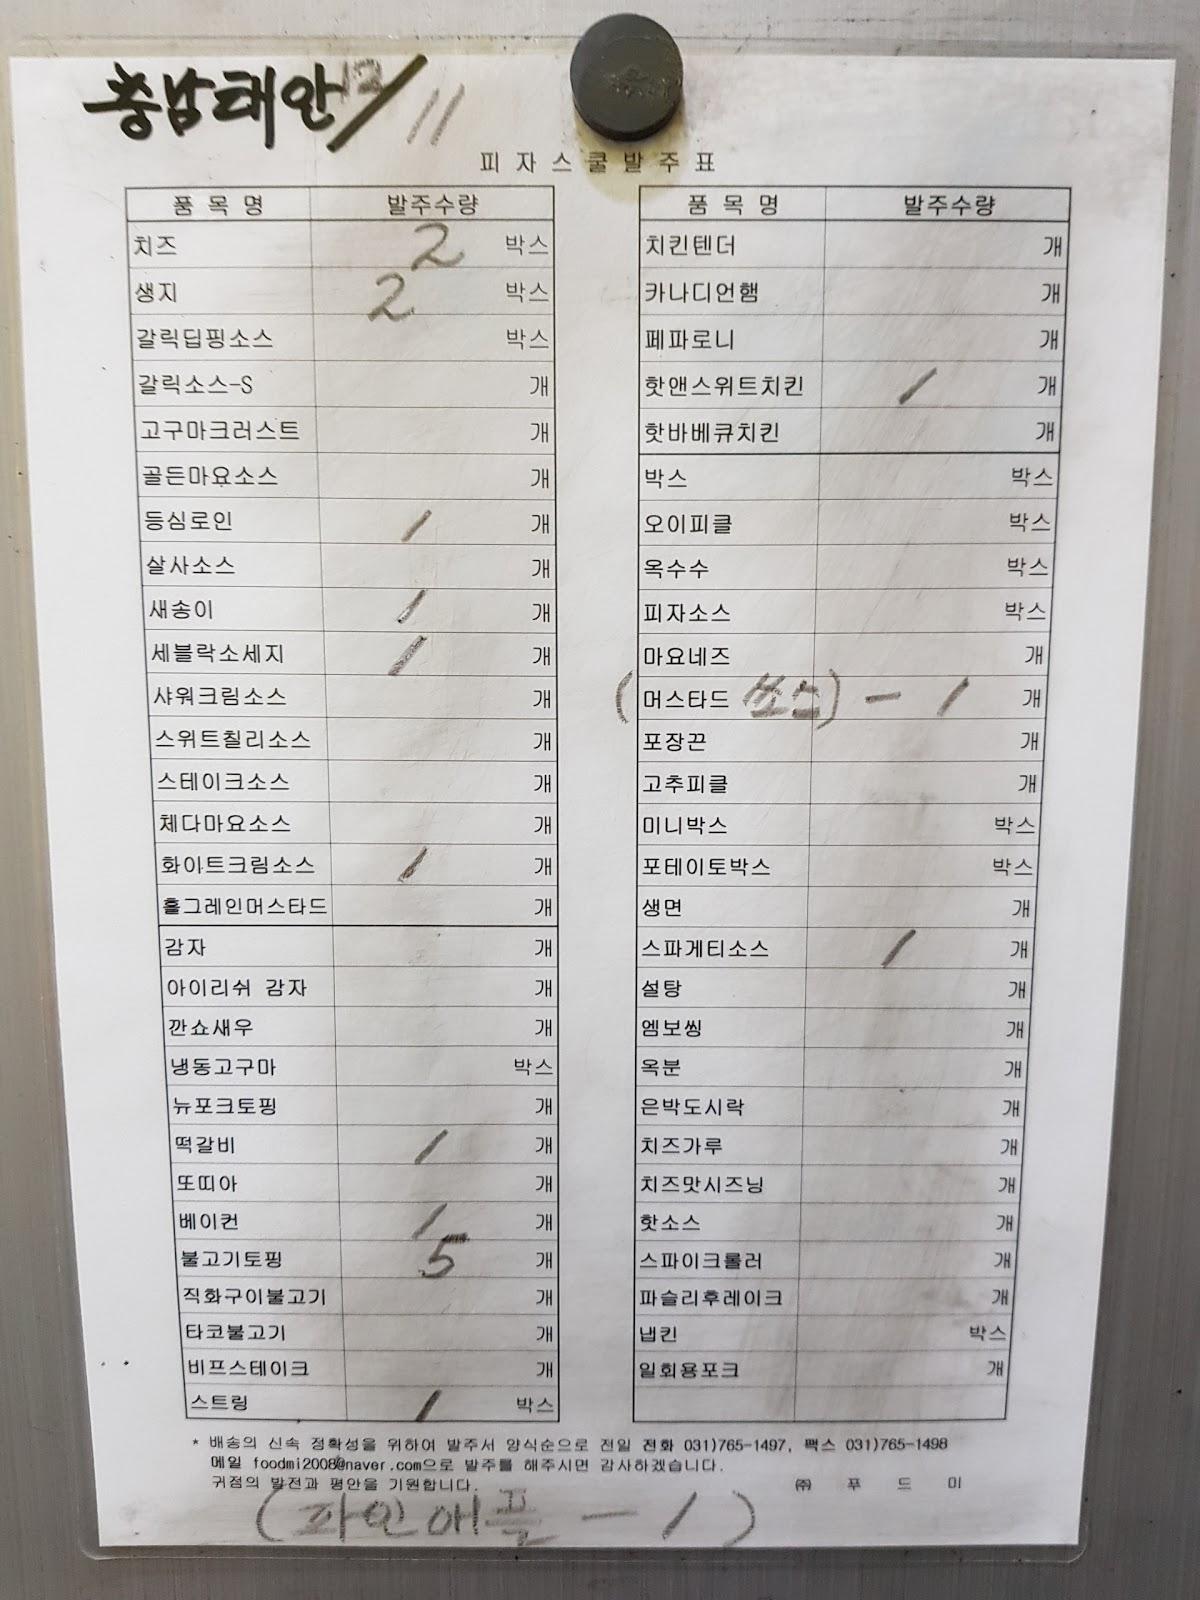 충남태안 12/11
피자스쿨발주표
품목명 발주수량
치즈 2 박스
생지 2 박스
갈릭딥핑소스 박스
갈릭소스-S 개
고구마크러스트 개
골든마요소스 개
등심로인 1 개
살사소스 개
새송이 1 개
세블락소세지 1 개
샤워크림소스 개
스위트칠리소스 개
스테이크소스 개
체다마요소스 개
화이트크림소스 1 개
홀그레인머스타드 개
감자 개
아이리쉬 감자 개
깐쇼새우 개
냉동고구마 박스
뉴포크토핑 개
떡갈비 1 개
또띠아 개
베이컨 1 개
불고기토핑 5 개
직화구이불고기 개
타코불고기 개
비프스테이크 개
스트링 1 박스
품목명 발주수량
치킨텐더 개
카나디언햄 개
페파로니 개
핫앤스위트치킨 1 개
핫바베큐치킨 개
박스 박스
오이피클 박스
옥수수 박스
피자소스 박스
마요네즈 개
(머스타드 쏘스) - 1 개
포장끈 개
고추피클 개
미니박스 박스
포테이토박스 박스
생면 개
스파게티소스 1 개
설탕 개
엠보씽 개
옥분 개
은박도시락 개
치즈가루 개
치즈맛시즈닝 개
핫소스 개
스파이크롤러 개
파슬리후레이크 개
냅킨 박스
일회용포크 개
* 배송의 신속 정확성을 위하여 발주서 양식순으로 전일 전화 031)765-1497, 팩스 031)765-1498
메일 foodmi2008@naver.com으로 발주를 해주시면 감사하겠습니다.
귀점의 발전과 평안을 기원합니다. ㈜ 푸드미
(파인애플 - 1)